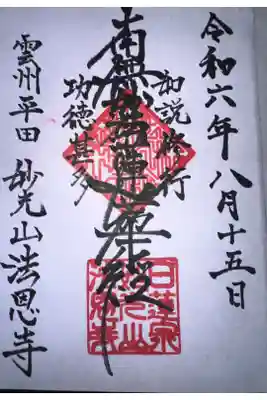 令和六年八月十五日
如説修行
南無妙法蓮華経
功徳甚多
妙光山法恩寺
雲州平田
日蓮宗
妙光山
法恩寺